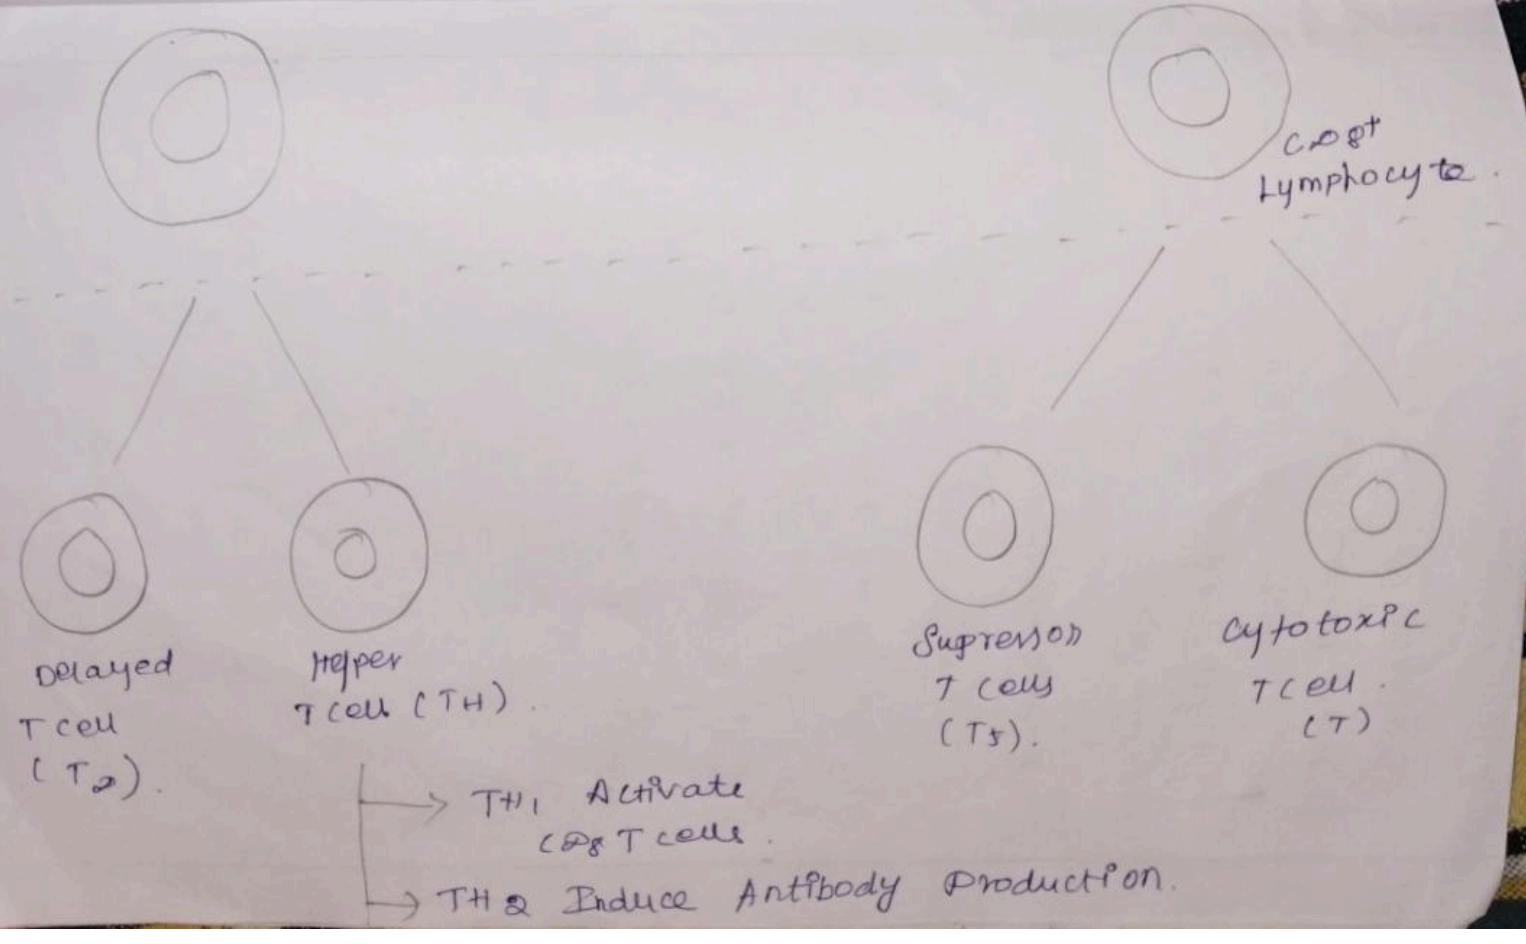 CD8+
Lymphocyte.
Delayed
T cell
(T2).
Helper
T cell (TH).
Supressor
T cells
(Ts).
Cytotoxic
T cell.
(T)
TH1 Activate
CD8 T cells.
TH2 Induce Antibody Production.